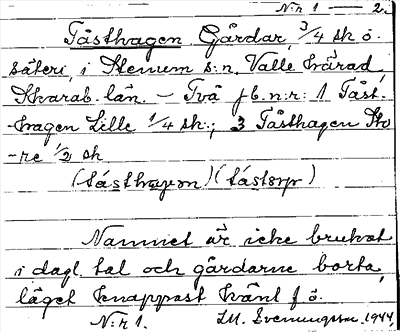 N:r 1 — 2.
Tåsthagen Gårdar, 3/4 sk ö.
säteri, i Stenum s:n, Valle härad,
Skarab. län. – Två jb.n:r: 1 Tåst-
hagen Lille 1/4 sk.; 3 Tåsthagen Sto
-re 1/2 sk
Namnet är icke brukat
i dagl. tal och gårdarne borta,
läget knappast känt f. ö.
N:r 1. Svenungsson 1944